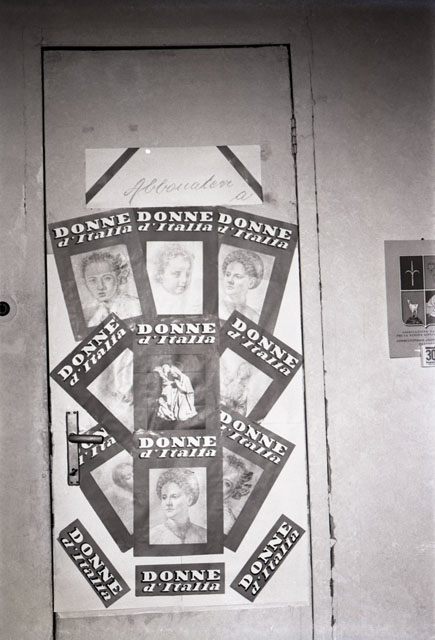 Abbonatevi
a
DONNE
d'Italia
DONNE
d'Italia
DONNE
d'Italia
DONNE
d'Italia
DONNE
d'Italia
DONNE
d'Italia
DONNE
DONNE
d'Italia
DONNE
d'Italia
DONNE
d'Italia
DONNE
d'Italia
DONNE
d'Italia
30